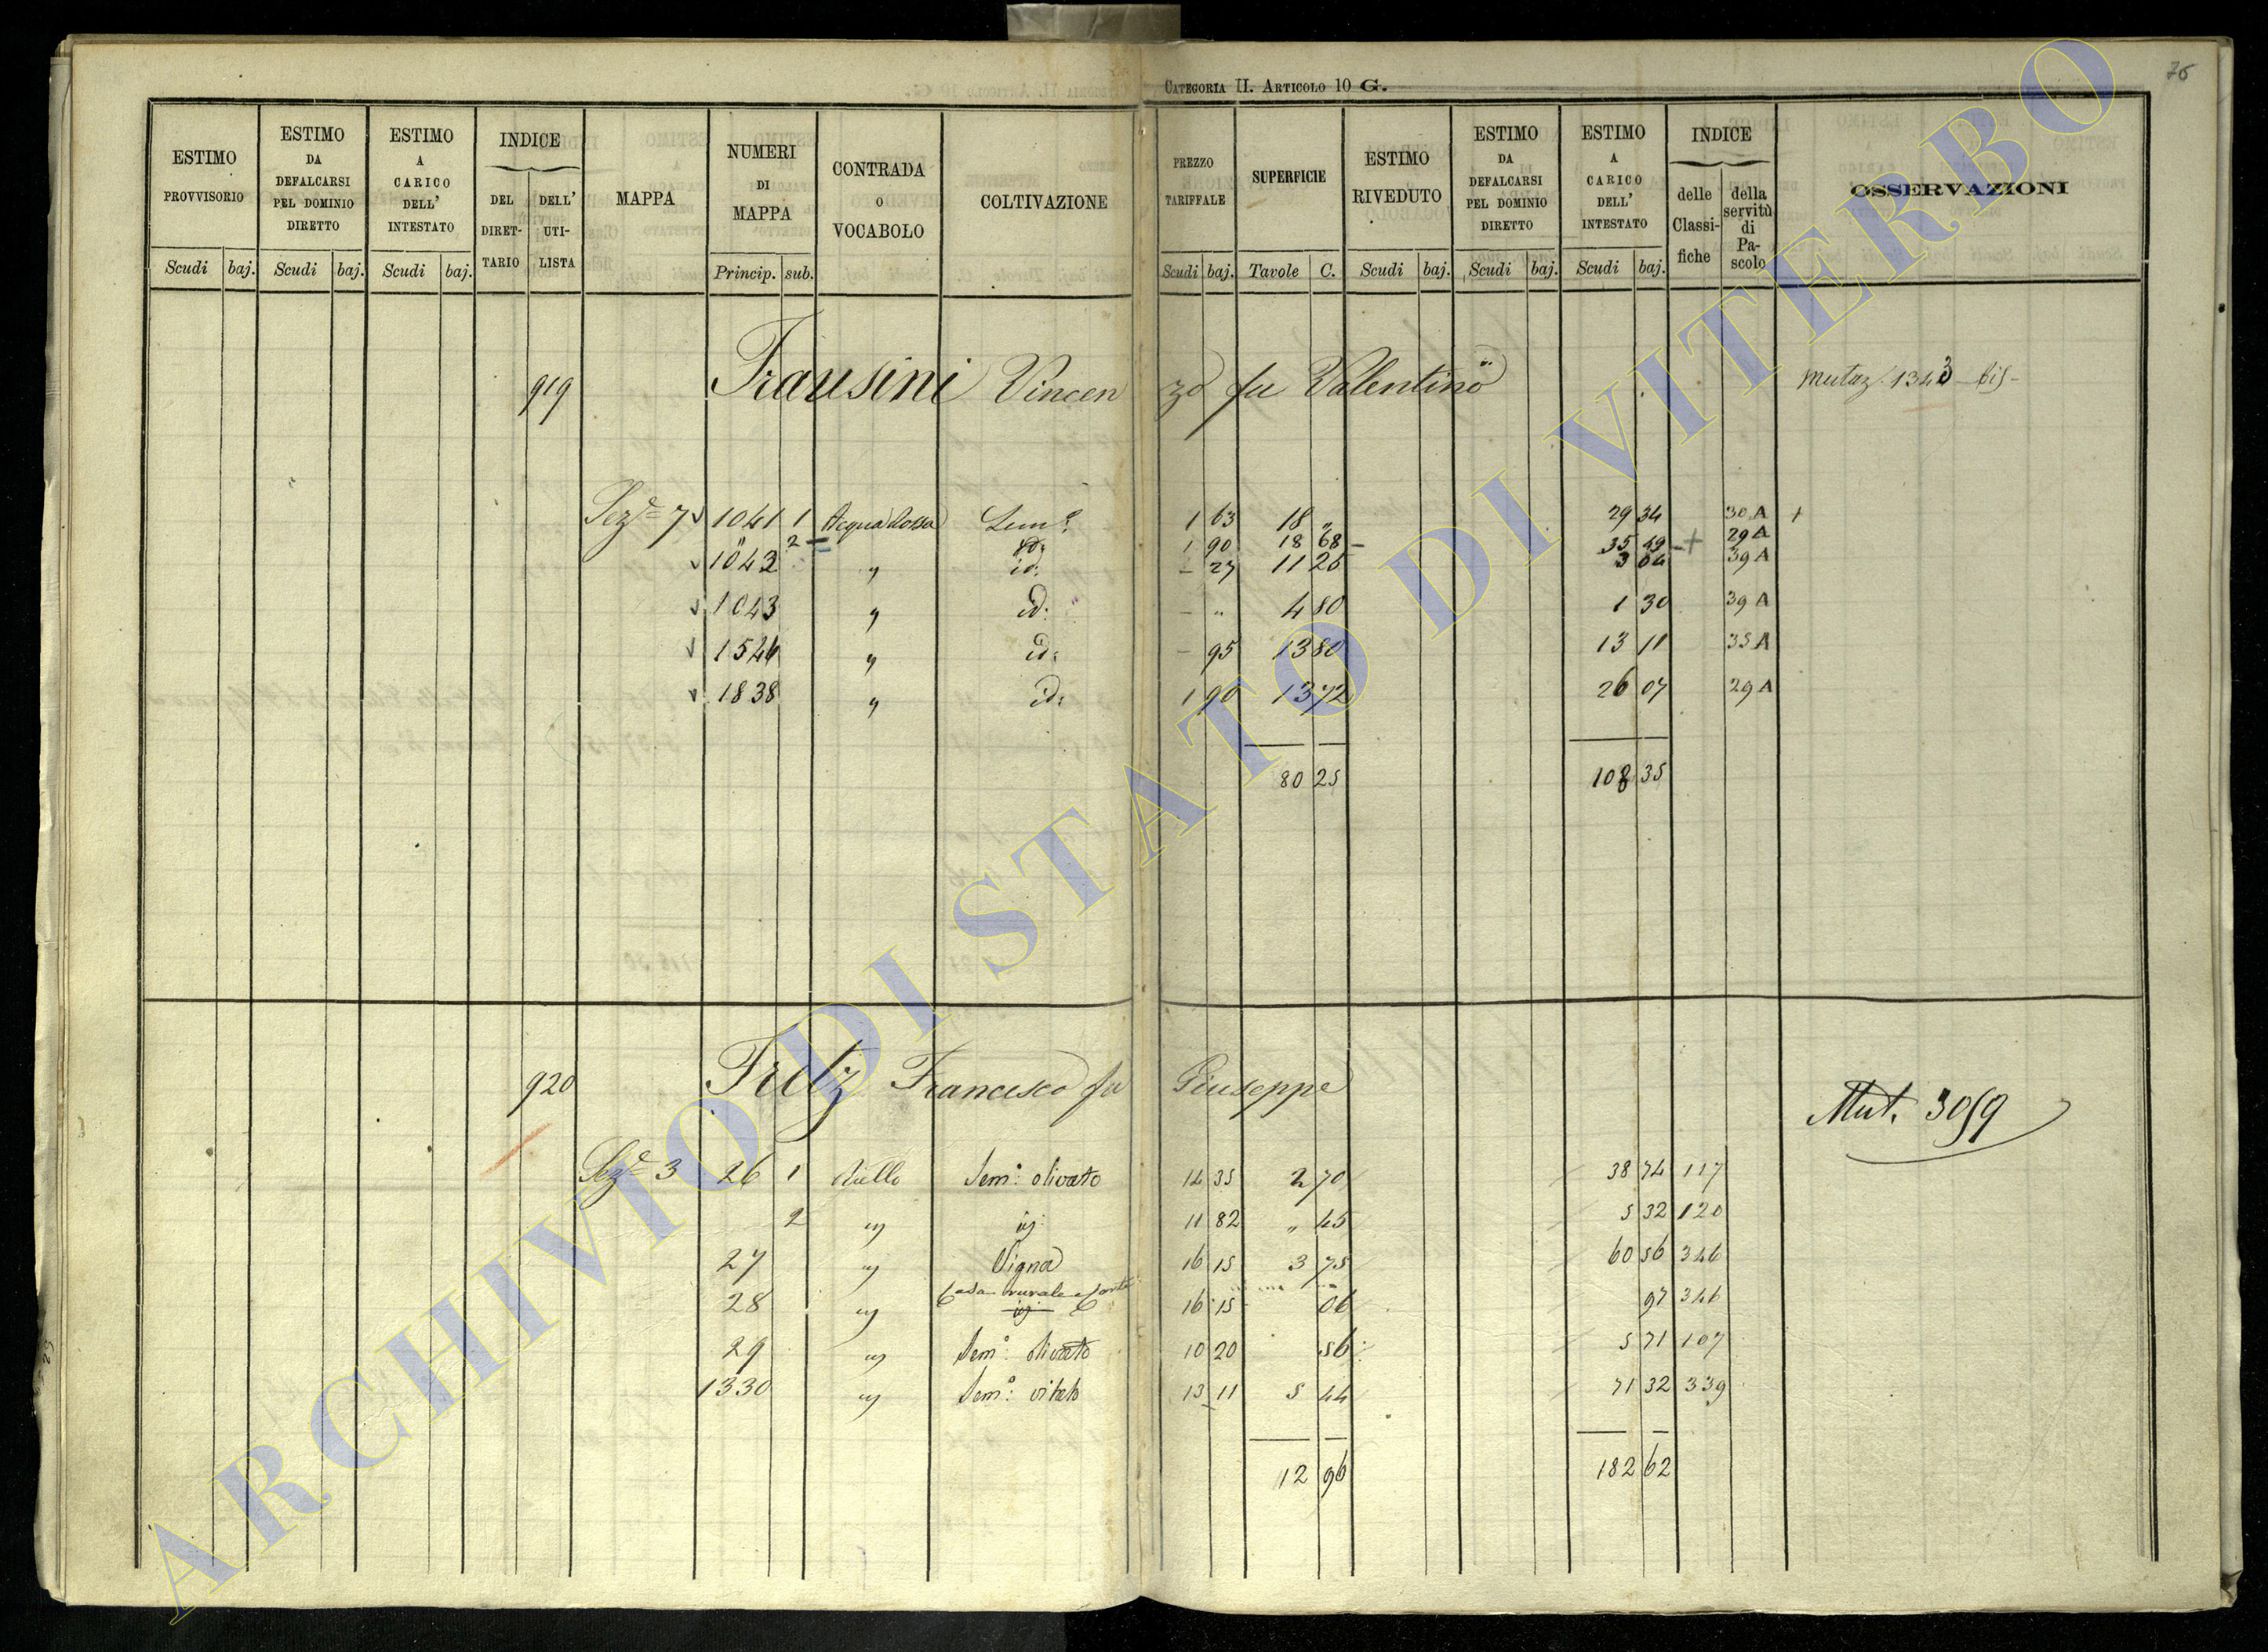 Categoria II. Articolo 10 G.
76
ESTIMO PROVVISORIO
ESTIMO DA DEFALCARSI PEL DOMINIO DIRETTO
ESTIMO A CARICO DELL' INTESTATO
INDICE
DEL DIRET-TARIO
DELL' UTI-LISTA
MAPPA
NUMERI DI MAPPA
CONTRADA O VOCABOLO
COLTIVAZIONE
PREZZO TARIFFALE
SUPERFICIE
ESTIMO RIVEDUTO
ESTIMO DA DEFALCARSI PEL DOMINIO DIRETTO
ESTIMO A CARICO DELL' INTESTATO
INDICE
delle Classi-fiche
della servitù di Pa-scolo
OSSERVAZIONI
Scudi baj. Scudi baj. Scudi baj. Princip. sub. Scudi baj. Tavole C. Scudi baj. Scudi baj. Scudi baj.
919 Frausini Vincenzo fu Valentino mutaz. 1343 bis
Sez.e 7 1041 1 Acqua Rossa Sem.o 1 63 18 „ 29 34 30 A +
" 2 id: 1 90 18 68 35 49 + 29 A
1042 " id: - 27 11 25 3 04 39 A
1043 " id: - " 4 80 1 30 39 A
1546 " id: - 95 13 80 13 11 35 A
1838 " id: 1 90 13 72 26 07 29 A
80 25 108 35
920 Fretz Francesco fu Giuseppe Mut. 3059
Sez.e 3 26 1 Sem.o olivato 14 35 2 70 38 74 117
2 " id: 11 82 „ 45 5 32 120
27 " Vigna 16 15 3 75 60 56 346
28 " Casa rurale e Corte 16 15 06 97 346
29 " Sem.o olivato 10 20 56 5 71 107
1330 " Sem.o vitato 13 11 5 44 71 32 339
12 96 182 62
ARCHIVIO DI STATO DI VITERBO